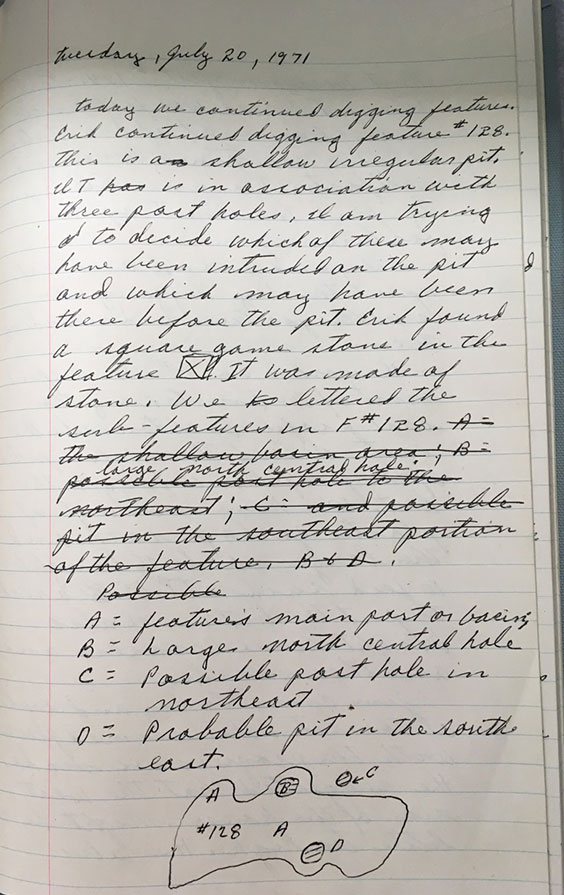 tuesday, July 20, 1971
today we continued digging features.
Erik continued digging feature #128.
this is a shallow irregular pit.
IT has is in association with
three post holes, I am trying
to decide which of these may
have been intruded on the pit
and which may have been
there before the pit. Erik found
a square game stone in the
feature. It was made of
stone. We lettered the
sub-features in F#128. A=
the shallow basin area; B=
large north central hole.
possible post hole to the
northeast; C= and possible
pit in the southeast portion
of the feature. B & D.
Possible
A = feature's main part or basin;
B = Large north central hole
C = Possible post hole in
northeast
D = Probable pit in the south
east.
A B C
#128 A D